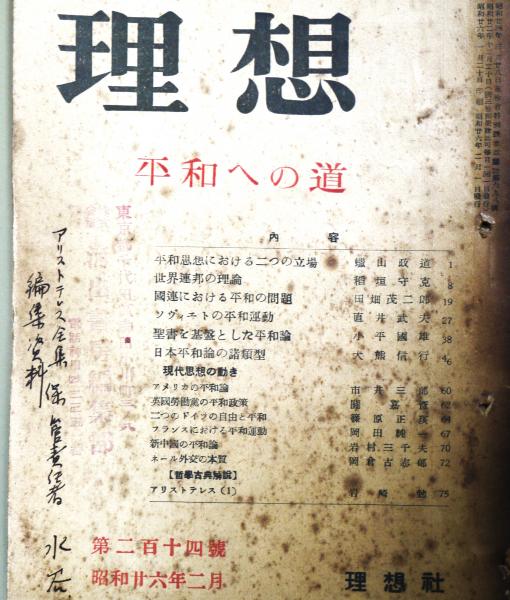 理想
平和への道
内容
平和思想における二つの立場 蠟山政道 1
世界連邦の理論 稻垣守克 8
國連における平和の問題 田畑茂二郎 19
ソヴィエトの平和運動 直井武夫 27
聖書を基盤とした平和論 小平國雄 38
日本平和論の諸類型 犬熊信行 46
現代思想の動き
アメリカの平和論 市井三郎 60
英國勞働黨の平和政策
二つのドイツの自由と平和 篠原正瑛 64
フランスにおける平和運動 岡田純一 67
新中國の平和論 岩村三千夫 70
ネール外交の本質 岡倉古志郎 72
【哲學古典解說】
アリストテレス(1) 岩崎勉 75
第二百十四號
昭和廿六年二月
理想社
アリストテレス全集 保管責任者 水谷
編集資料